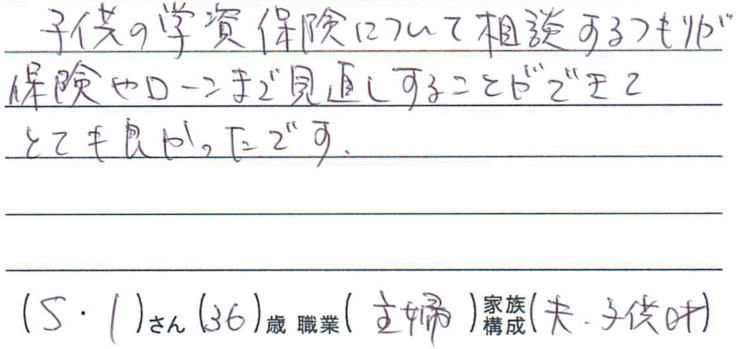 子供の学資保険について相談するつもりが
保険やローンまで見直しすることができて
とても良かったです.
(S・I)さん(36)歳 職業(主婦)家族構成(夫、子供1才)